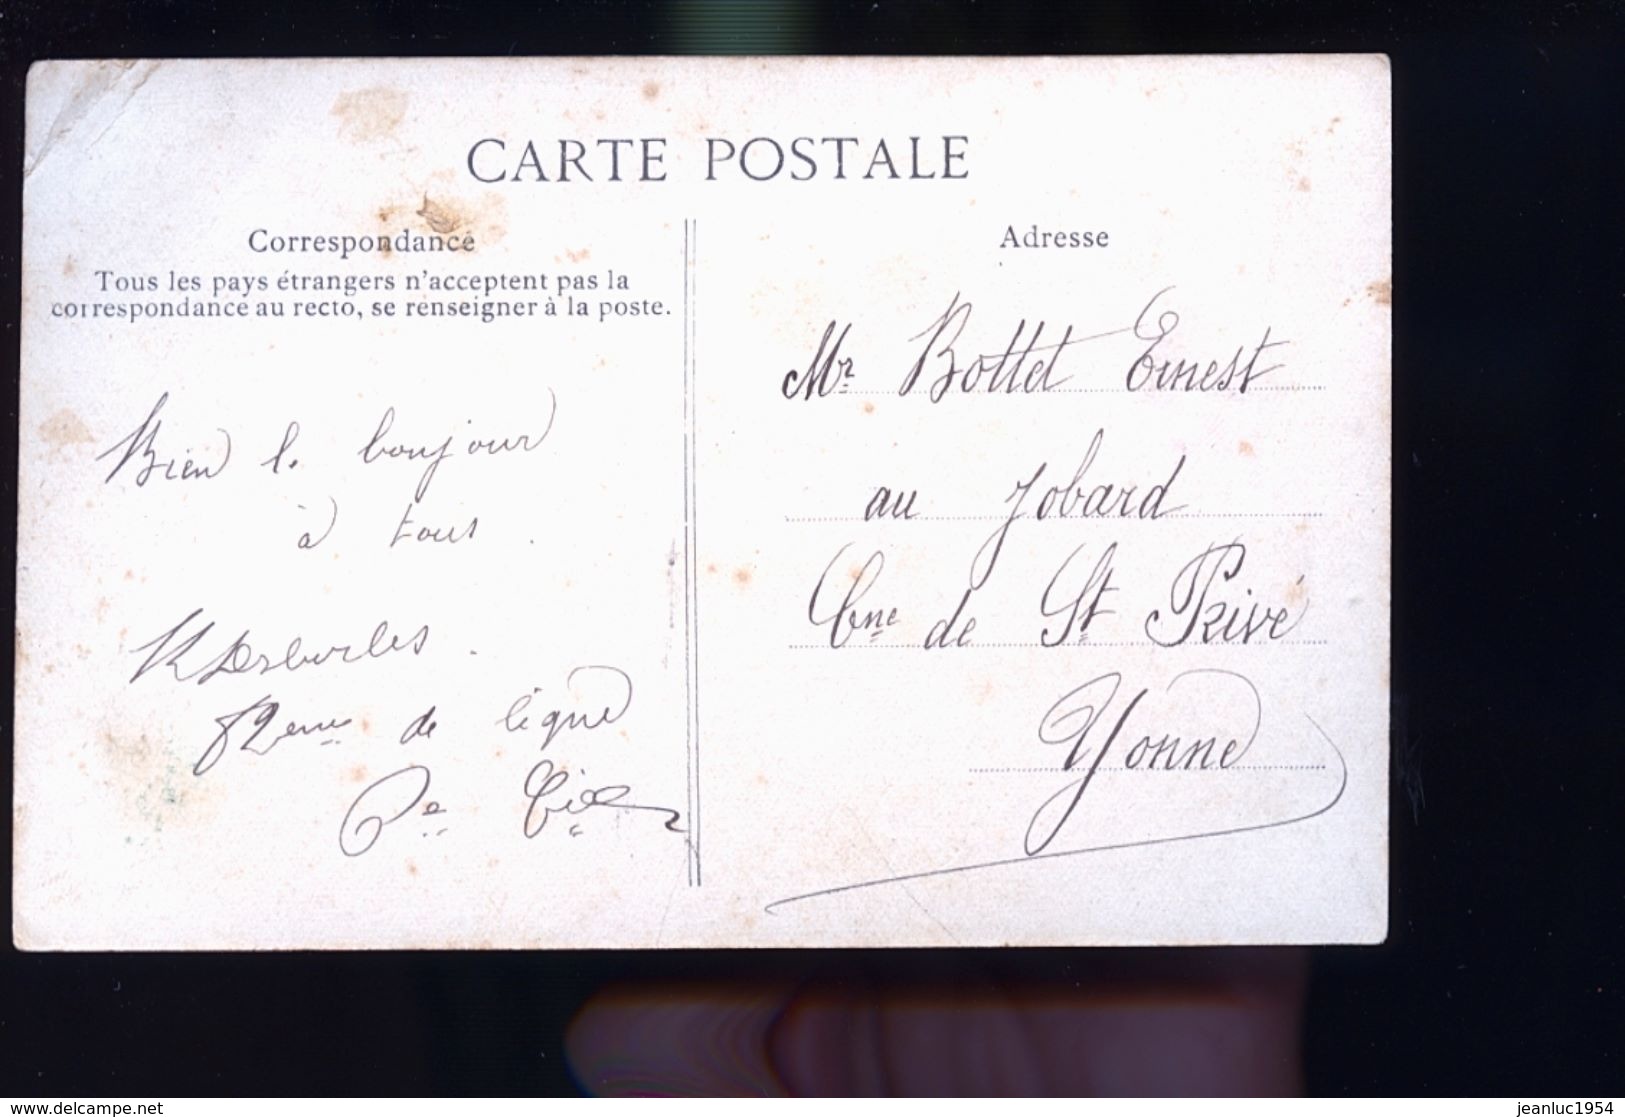 CARTE POSTALE
Correspondance
Tous les pays étrangers n'acceptent pas la
correspondance au recto, se renseigner à la poste.
Bien le bonjour
à tous.
82eme de ligne
Adresse
Mr Bottet Ernest
au Jobard
Cne de St Privé
Yonne
jeanluc1954